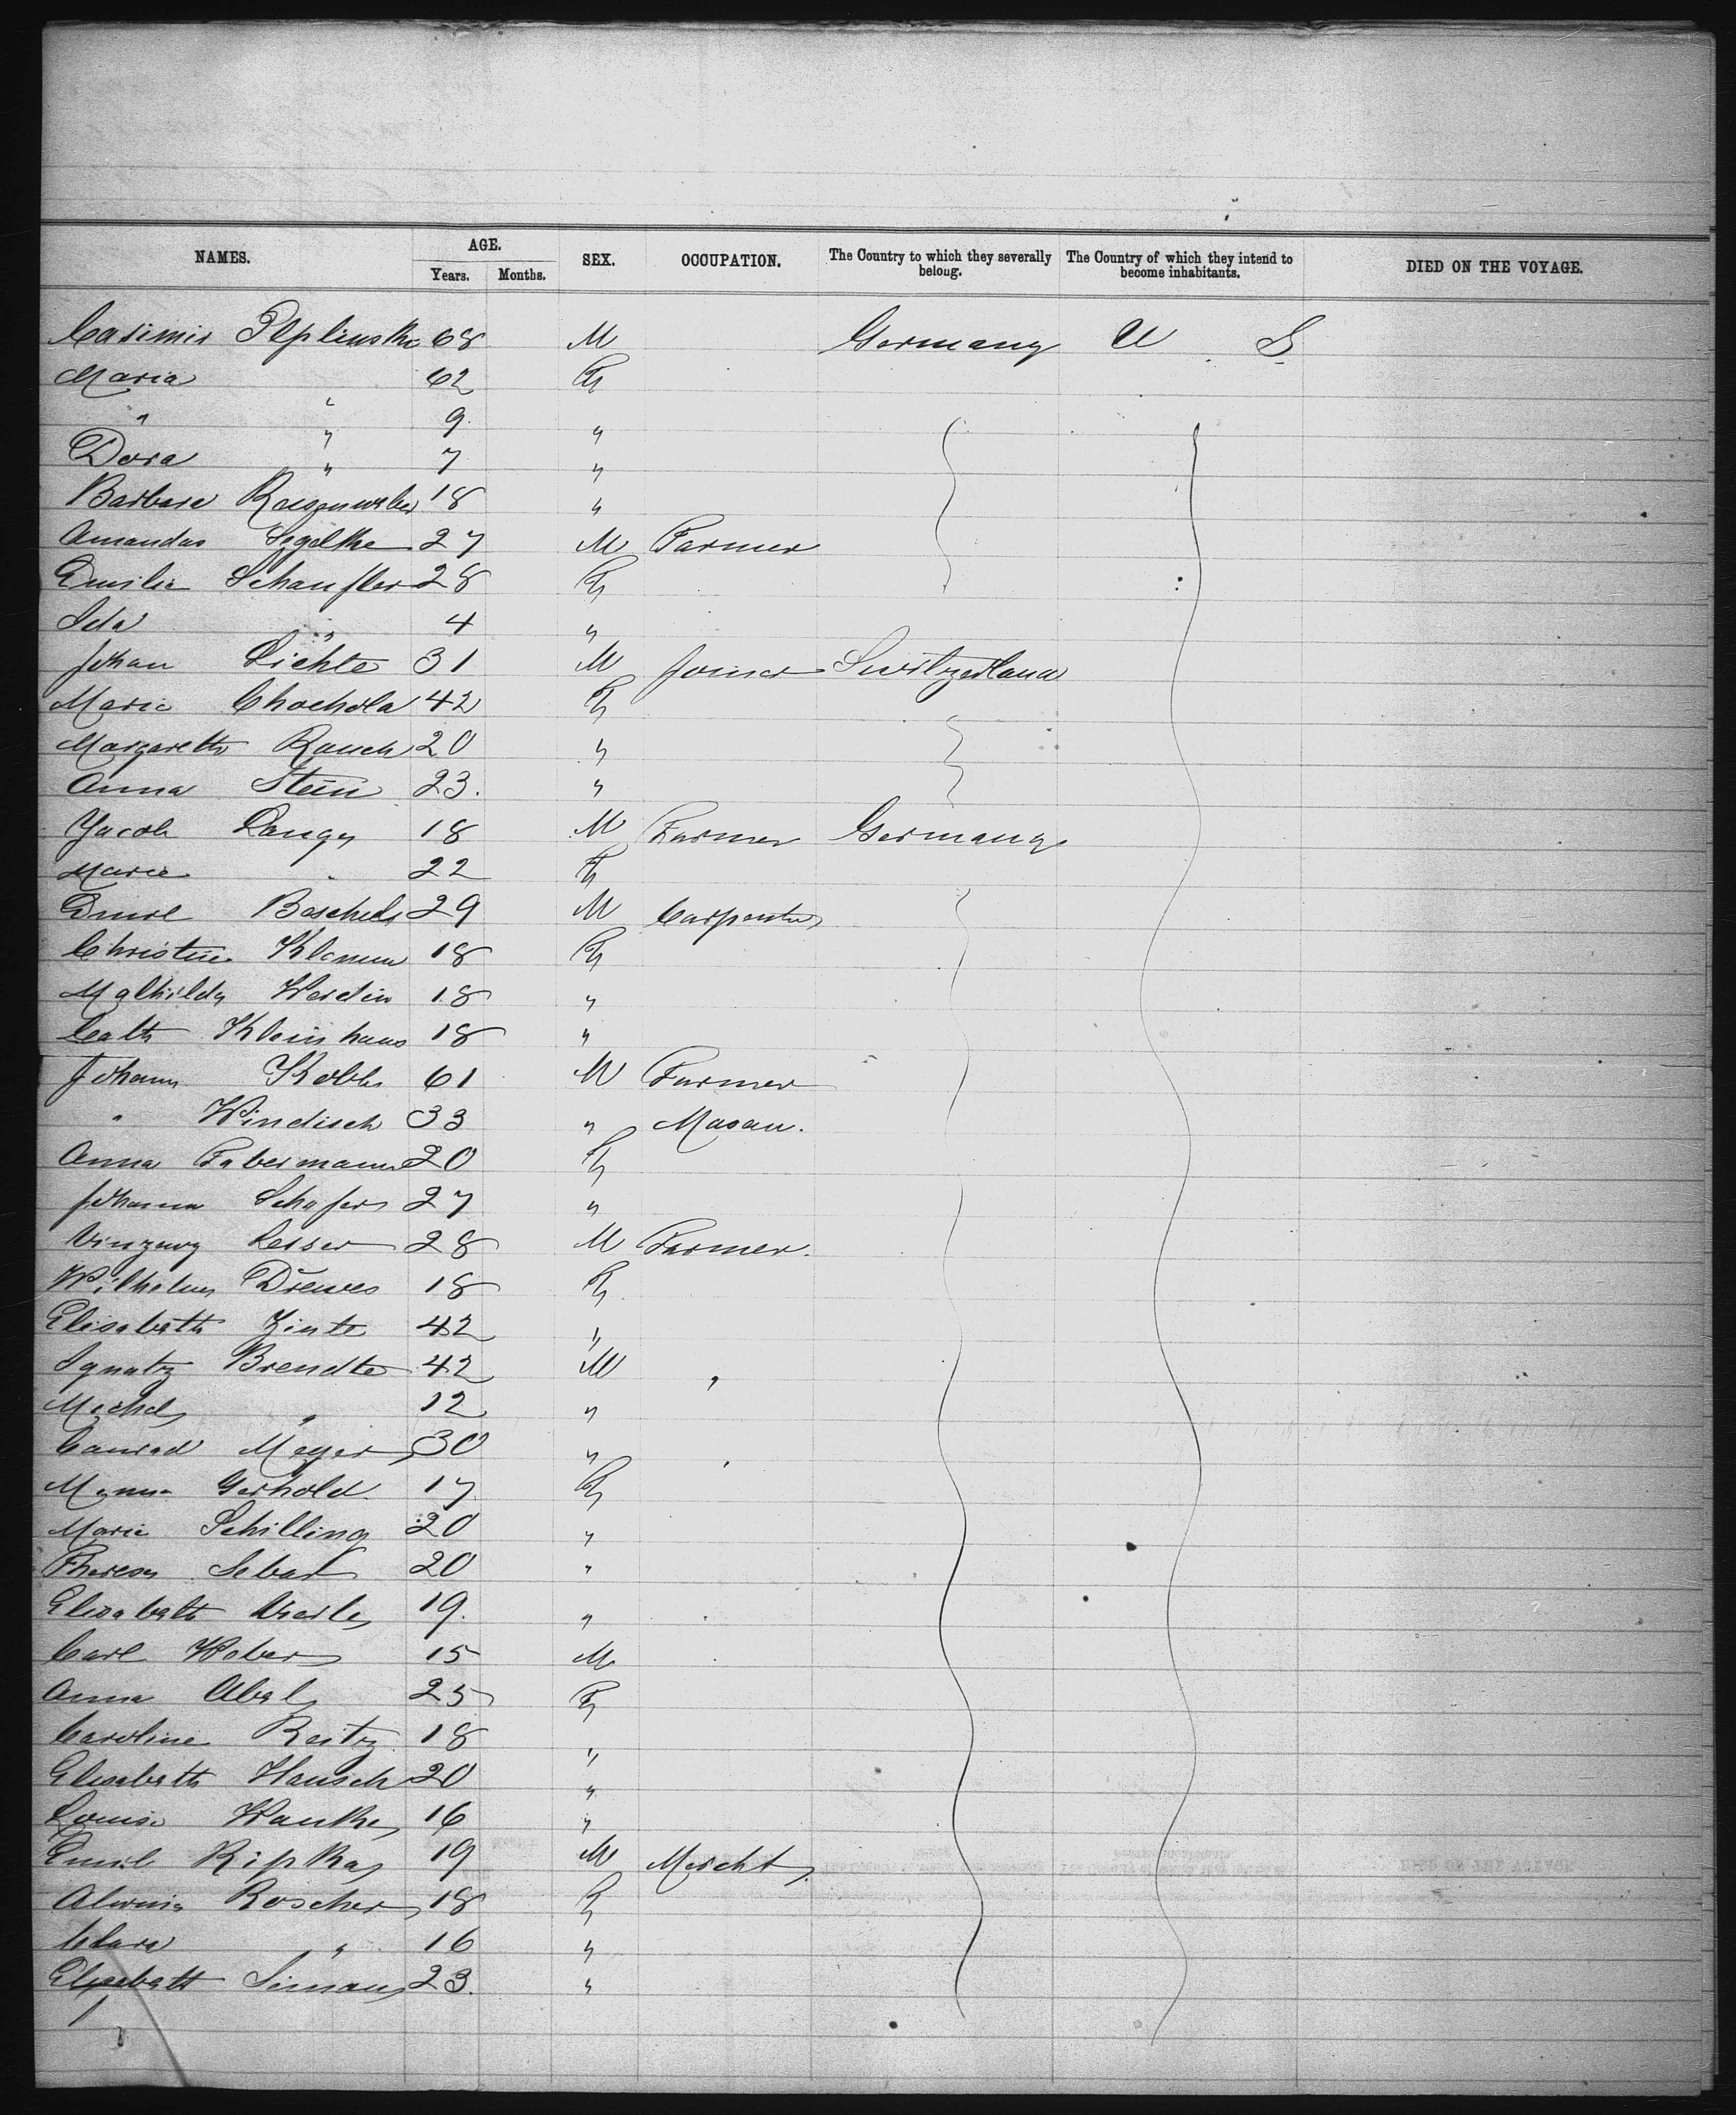 NAMES. AGE. SEX. OCCUPATION. The Country to which they severally belong. The Country of which they intend to become inhabitants. DIED ON THE VOYAGE.
Years. Months.
Casimir Peplinski 68 M Germany U S
Maria " 62 F
" " 9 "
Dora " 7 "
Barbara 18 "
Amandus Segelke 27 M Farmer
Emilie Schaufler 28 F
Ida " 4 "
Johan Lichte 31 M Joiner Switzerland
Marie Chochola 42 F
Margareth Rauch 20 "
Anna Stein 23. "
Jacob Lang 18 M Farmer Germany
Marie " 22 F
Emil 29 M Carpenter
Christine 18 F
Mathilde Werdin 18 "
Cath Kleinhans 18 "
Johann Kobb 61 M Farmer
" Windisch 33 " Mason.
Anna Fabermann 20 F
Johanna Schafer 27 "
Vinzenz Lesser 28 M Farmer.
Wilhelm Drewes 18 F
Elisabeth Zinte 42 "
Ignatz Brendte 42 M "
Michel " 12 "
Conrad Meyer 30 " "
Minna Gerhold 17 F
Marie Schilling 20 "
Theresa 20 "
Elisabeth 19. "
Carl Weber 15 M
Anna Abel 25 F
Caroline Reitz 18 "
Elisabeth Hausch 20 "
Louise Wanke 16 "
Emil Ripka 19 M Mercht.
Alwine Roscher 18 F
Clara " 16 "
Elisabeth Simon 23. "